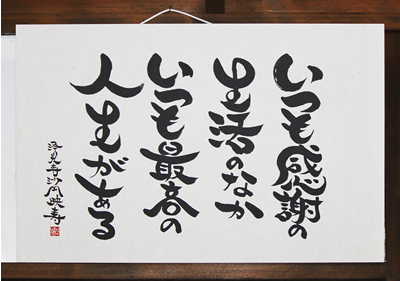 いつも感謝の
生活のなか
いつも最高の
人生がある
浄見寺沙門映寿